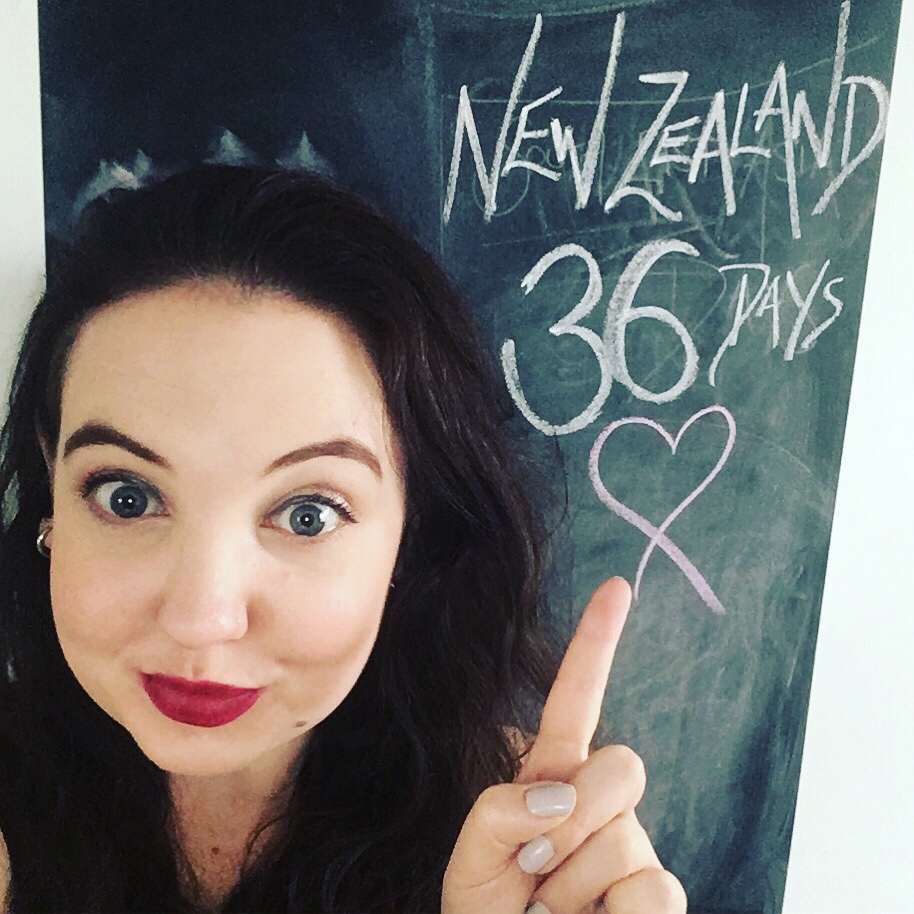 NEW ZEALAND
36 DAYS